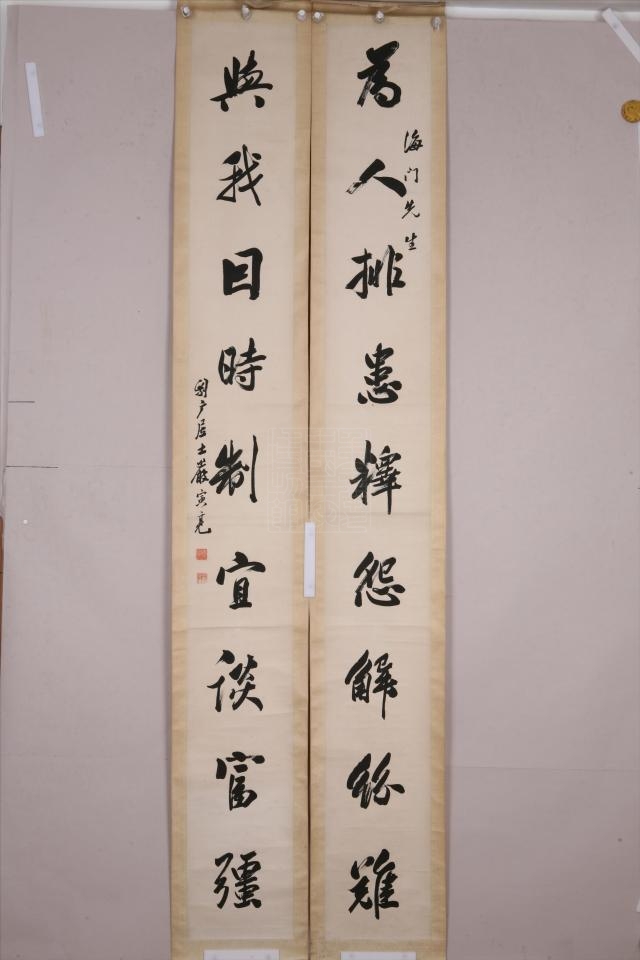 為人排患釋怨解紛難
海门先生
與我因時制宜談富彊
居士嚴寅亮